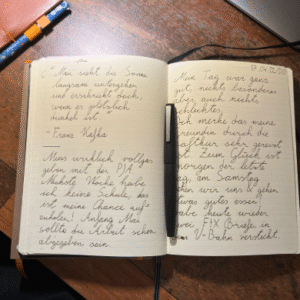 "Man sieht die Sonne
langsam untergehen
und erschrickt doch,
wenn es plötzlich
dunkel ist."
- Franz Kafka
Muss wirklich vollgas
geben mit der PJA.
Nächste Woche habe
ich keine Schule, das
ist meine Chance auf-
zuholen! Anfang Mai
sollte die Arbeit schon
abgegeben sein.
Mein Tag war ganz
gut, nichts besonderes
aber auch nichts
schlechtes.
Ich merke das meine
Freundin durch die
sehr gereizt
ist. Zum Glück ist
morgen der letzte
Tag, am Samstag
sehen wir uns & gehen
etwas gutes essen!
habe heute wieder
zwei F!X Briefe in
U-Bahn versteckt.